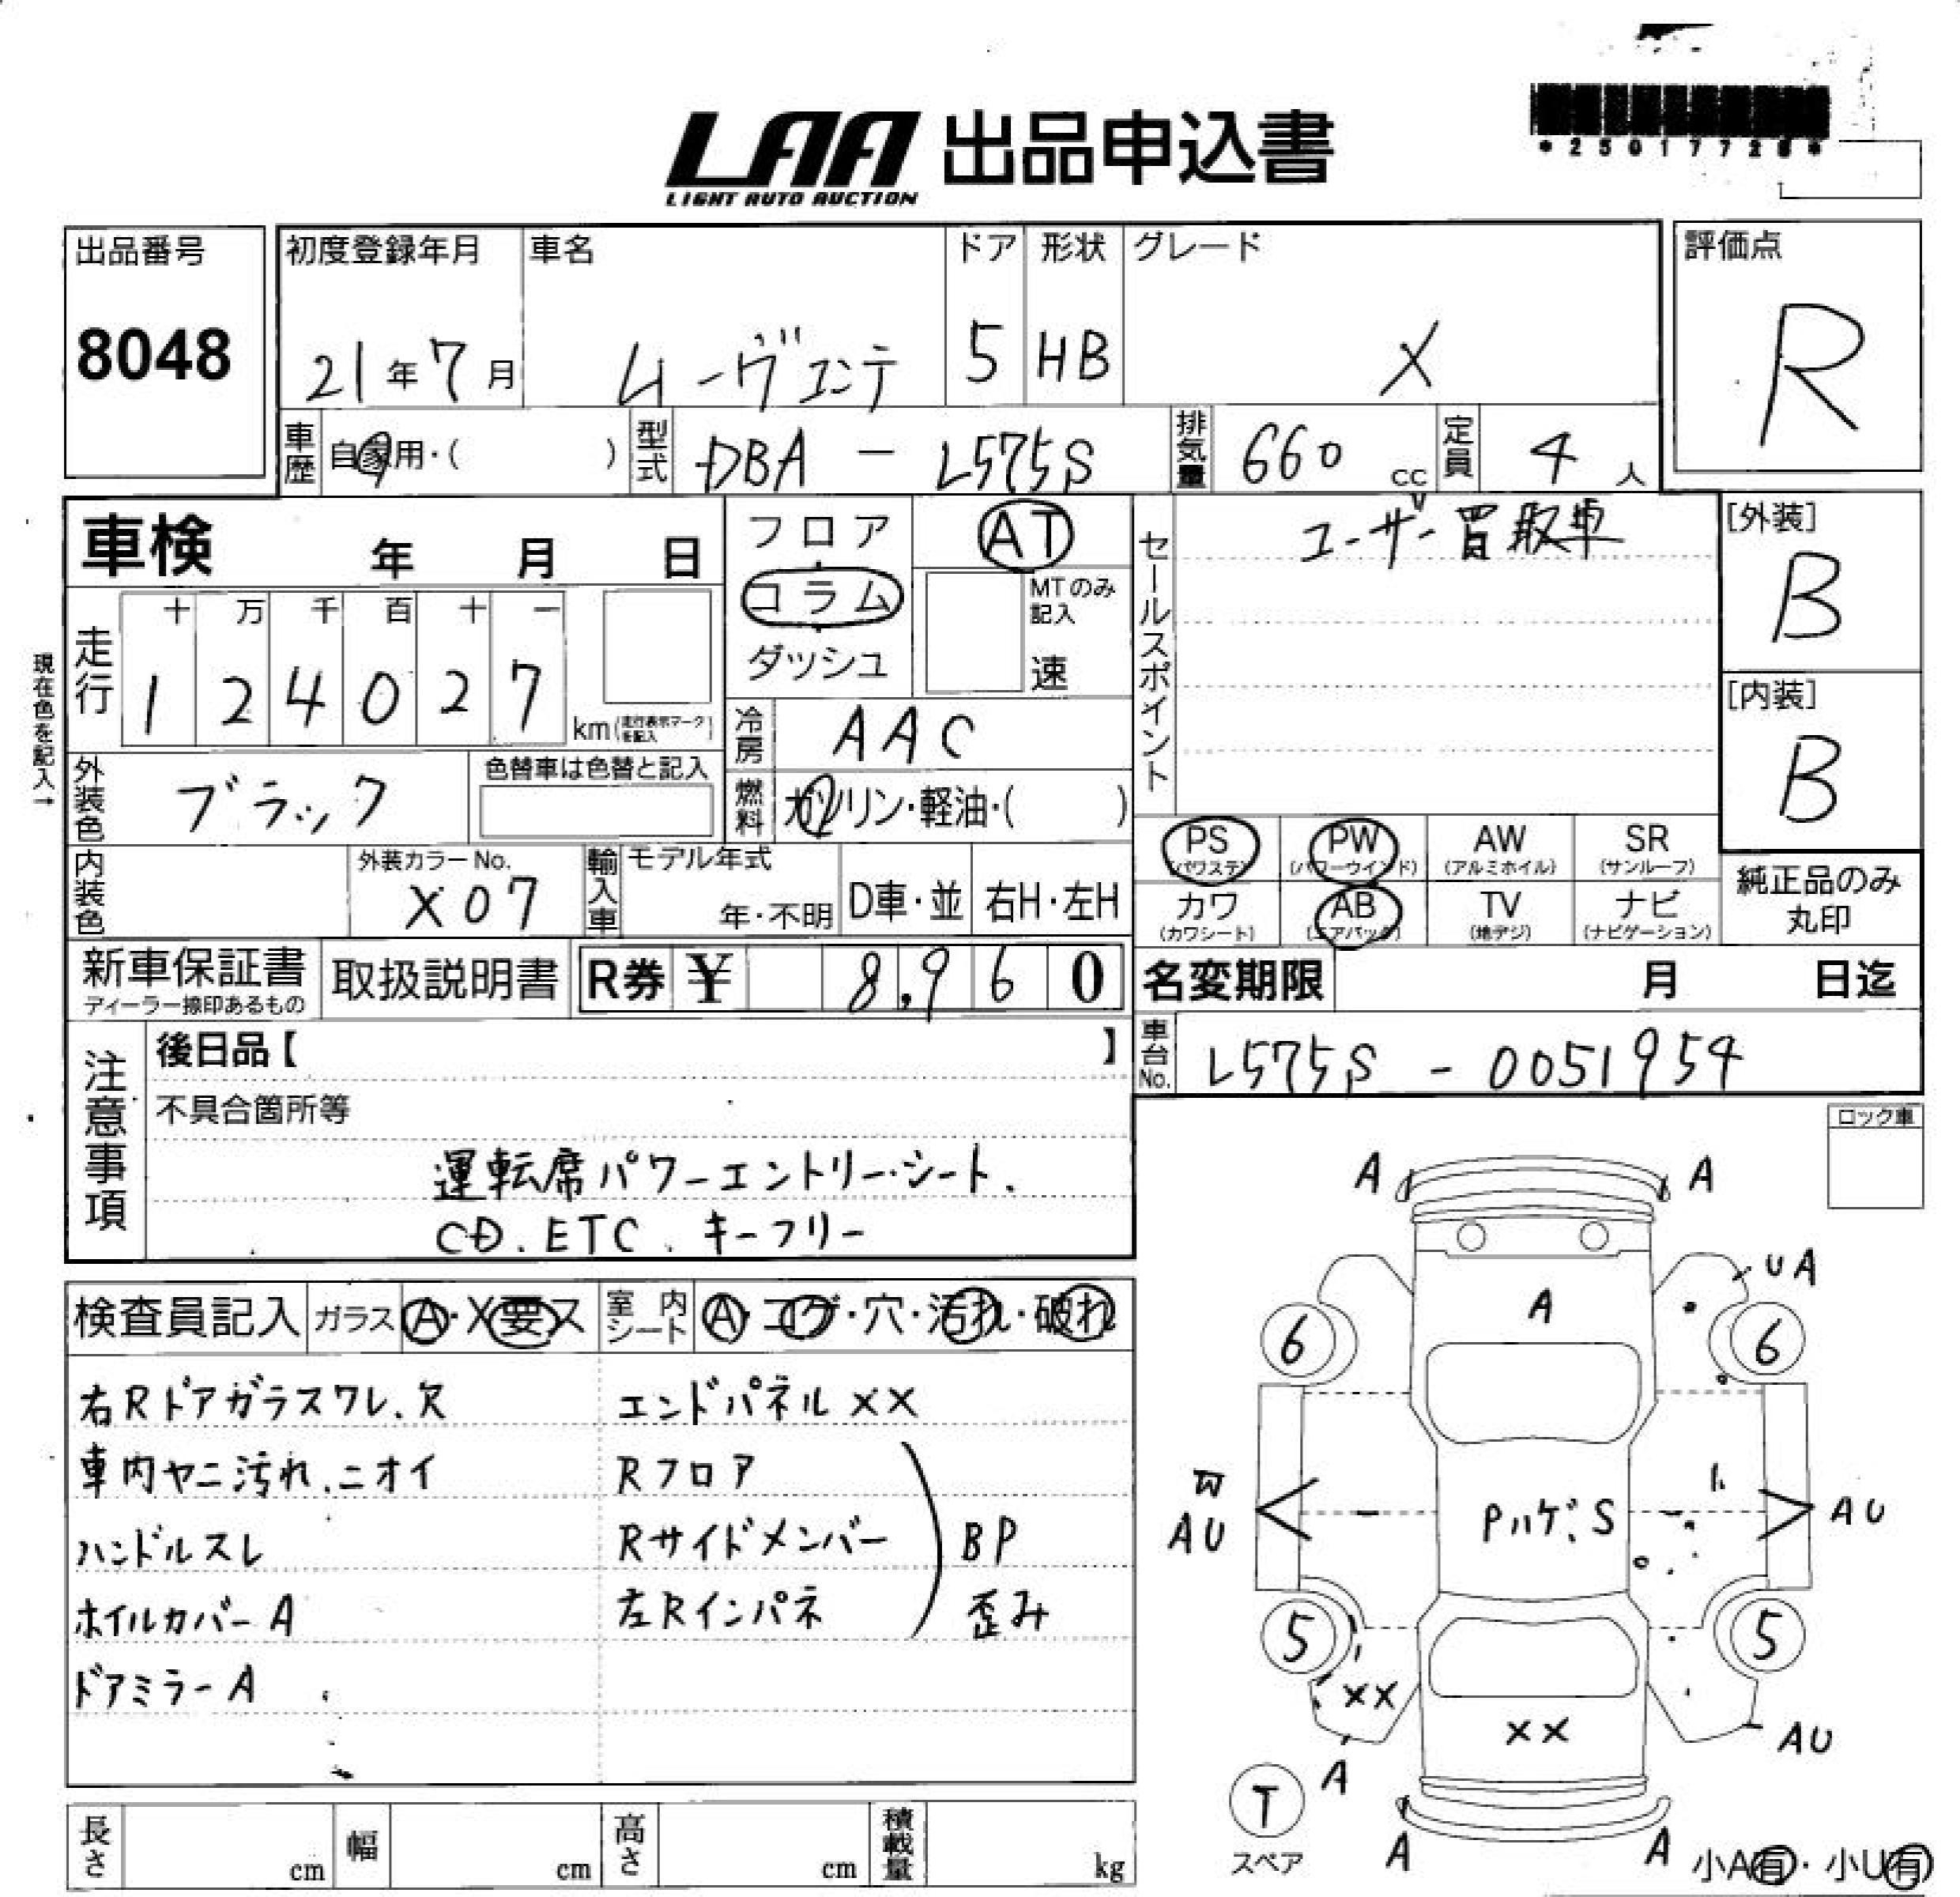 LAA 出品申込書
LIGHT AUTO AUCTION
*2501772
出品番号
8048
初度登録年月
21年7月
車名
ムーヴコンテ
ドア
5
形状
HB
グレード
X
評価点
R
車歴 自家用・( )
型式 DBA - L575S
排気量 660 cc
定員 4 人
車検 年 月 日
フロア
コラム
ダッシュ
AT
MTのみ記入
速
セールスポイント
ユーザー買取車
[外装]
B
[内装]
B
現在色を記入→
走行
十 万 千 百 十 一
1 2 4 0 2 7 km(走行表示マークを記入)
冷房 AAC
外装色 ブラック
色替車は色替と記入
燃料 ガソリン・軽油・( )
内装色
外装カラーNo.
X07
輸入車
モデル年式
年・不明
D車・並
右H・左H
PS (パワステ)
PW (パワーウインド)
AW (アルミホイル)
SR (サンルーフ)
カワ (カワシート)
AB (エアバック)
TV (地デジ)
ナビ (ナビゲーション)
純正品のみ丸印
新車保証書
ディーラー捺印あるもの
取扱説明書
R券 ¥ 8,960
名変期限 月 日迄
車台No. L575S - 0051954
注意事項
後日品【 】
不具合箇所等
運転席パワーエントリーシート.
CD. ETC. キーフリー
ロック車
検査員記入
ガラス A・X要ス
室内シート A・コゲ・穴・汚れ・破れ
右Rドアガラスワレ、欠
車内ヤニ汚れ、ニオイ
ハンドルスレ
ホイルカバーA
ドアミラーA
エンドパネル××
Rフロア
Rサイドメンバー
左Rインパネ
BP
歪み
A A
UA
A
6 6
AU
Pハゲ、S
AU
5 5
××
××
AU
A
T
スペア
A A
小A有・小U有
長さ cm
幅 cm
高さ cm
積載量 kg